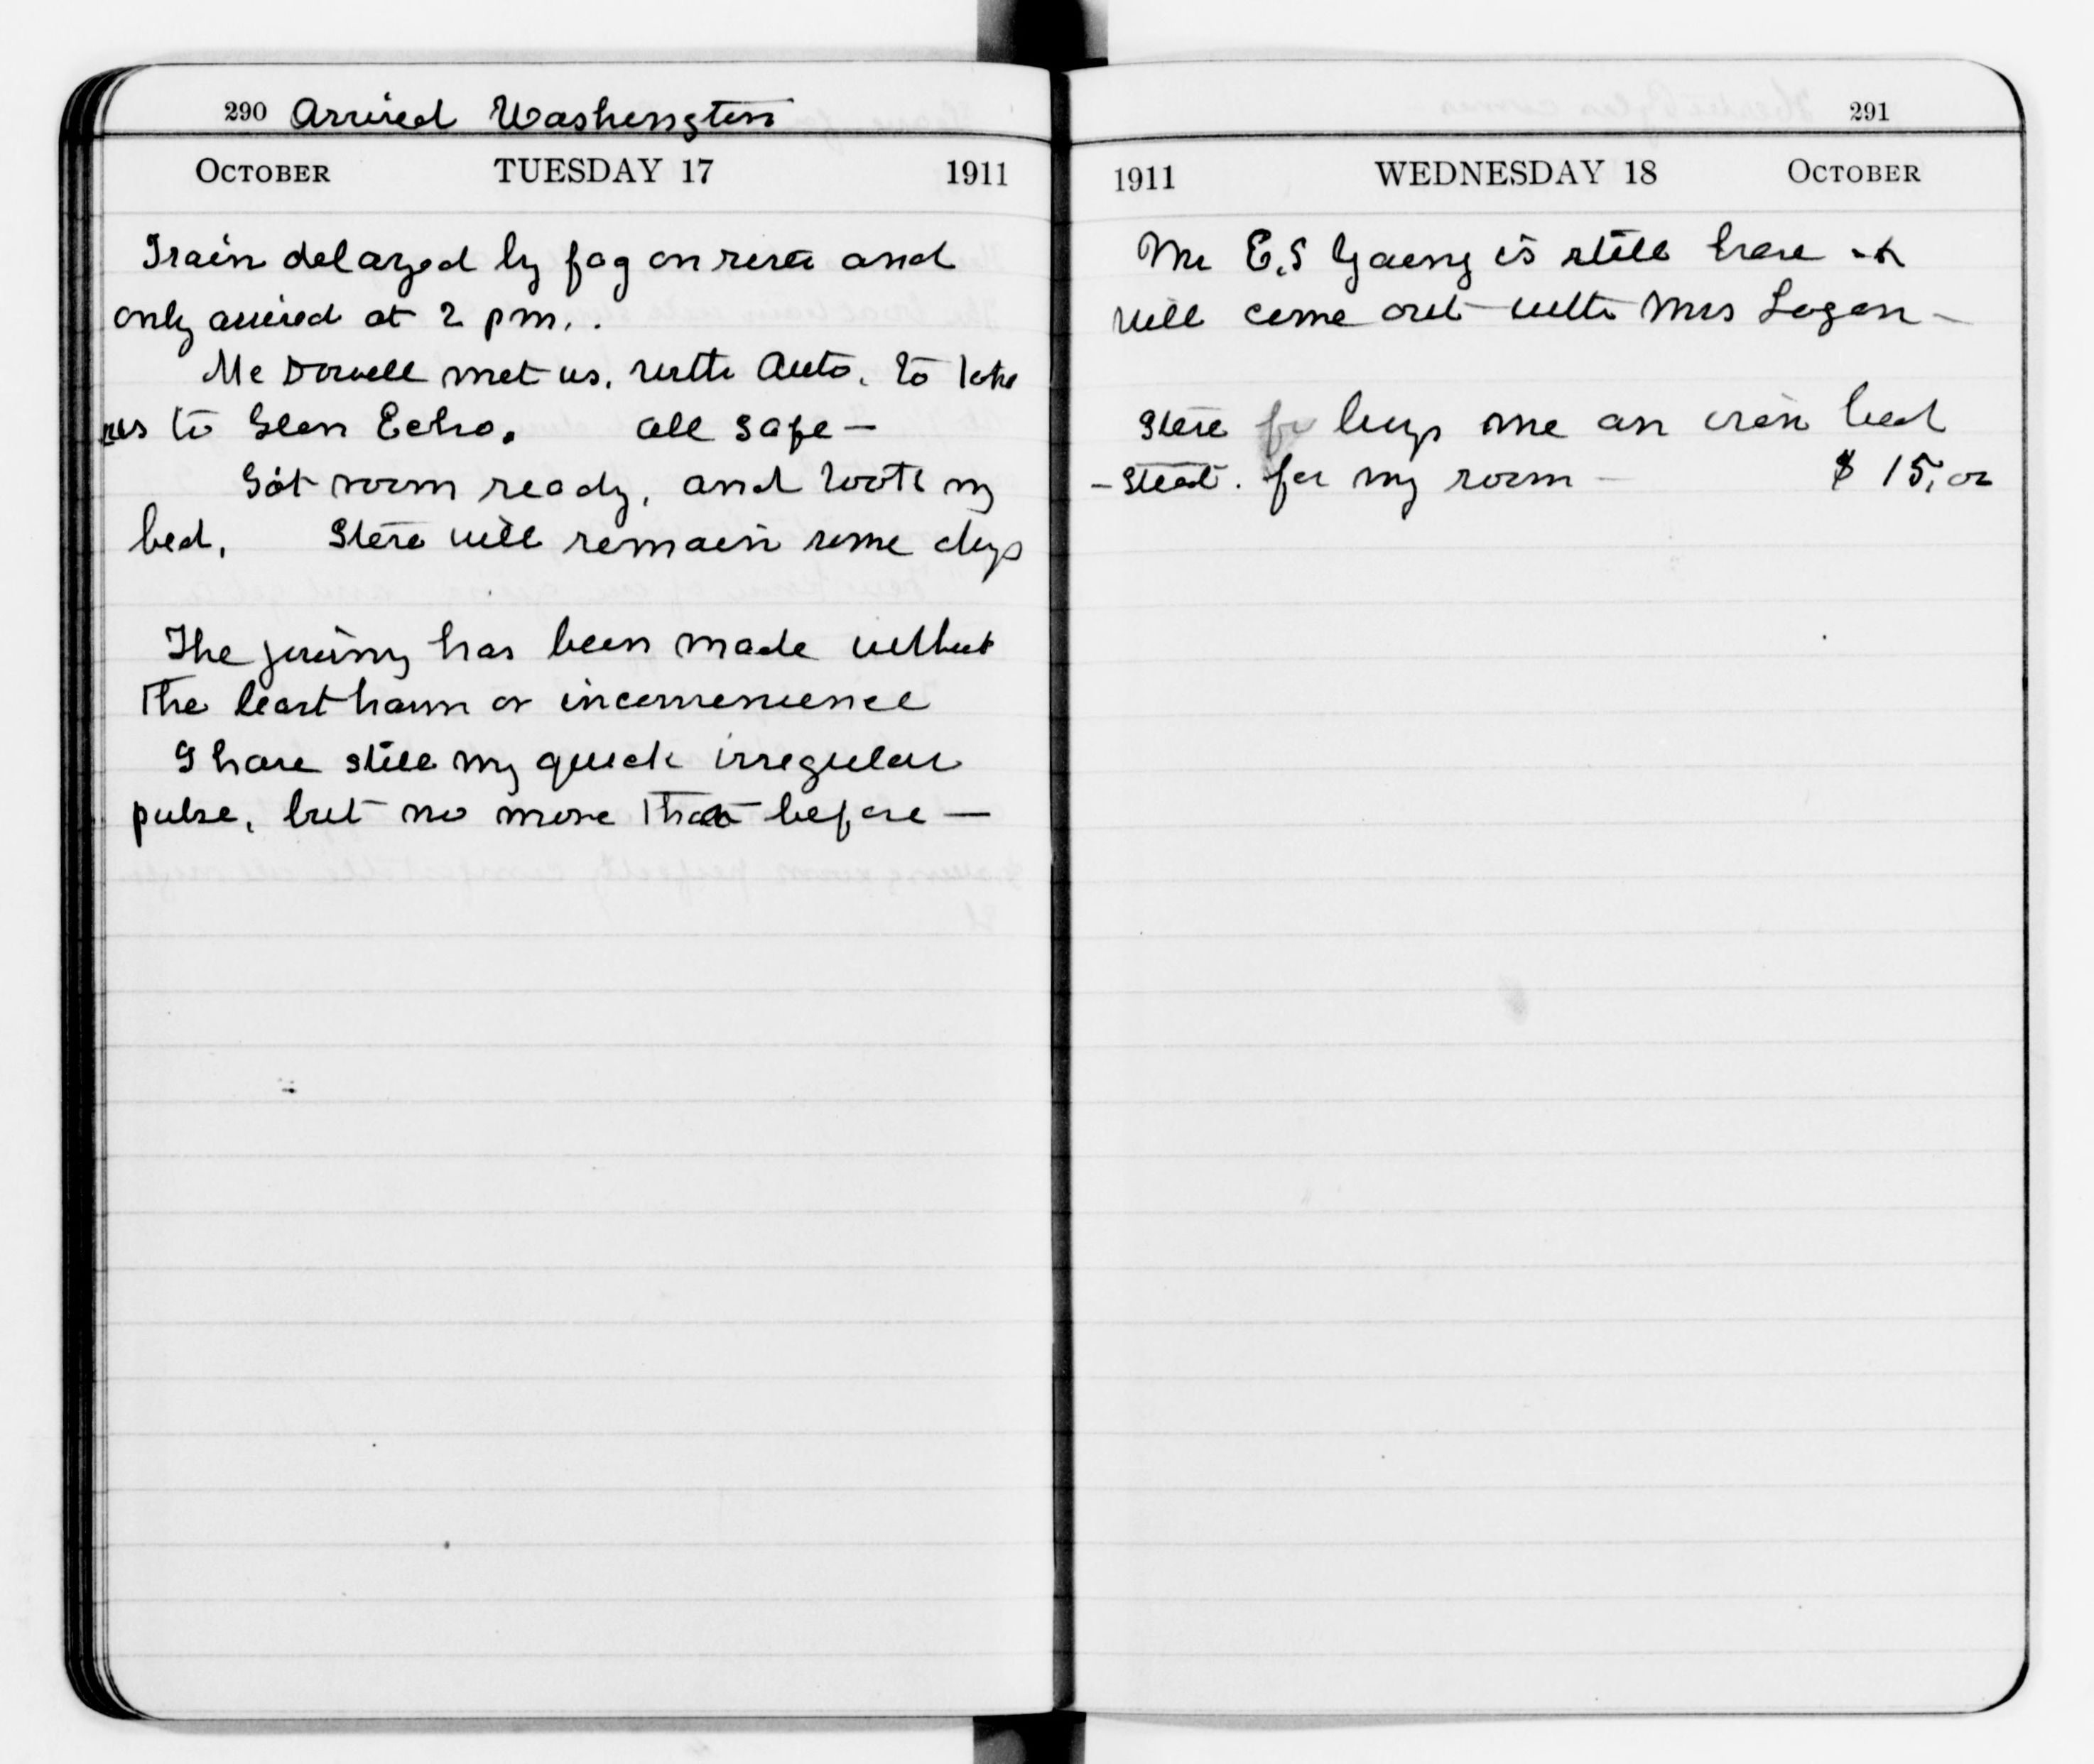 290 Arrived Washington
OCTOBER TUESDAY 17 1911
Train delayed by fog on river and
only arrived at 2 pm..
Mc Dowell met us, with Auto, to take
us to Glen Echo. All safe —
Got room ready, and took my
bed, Stere will remain some days
The journey has been made without
the least harm or inconvenience
I have still my quick irregular
pulse, but no more than before —
291
1911 WEDNESDAY 18 OCTOBER
Mr E.S Young is still here &
will come out with Mrs Logan —
Stere buys me an iron bed
- Stead. for my room — $ 15,00